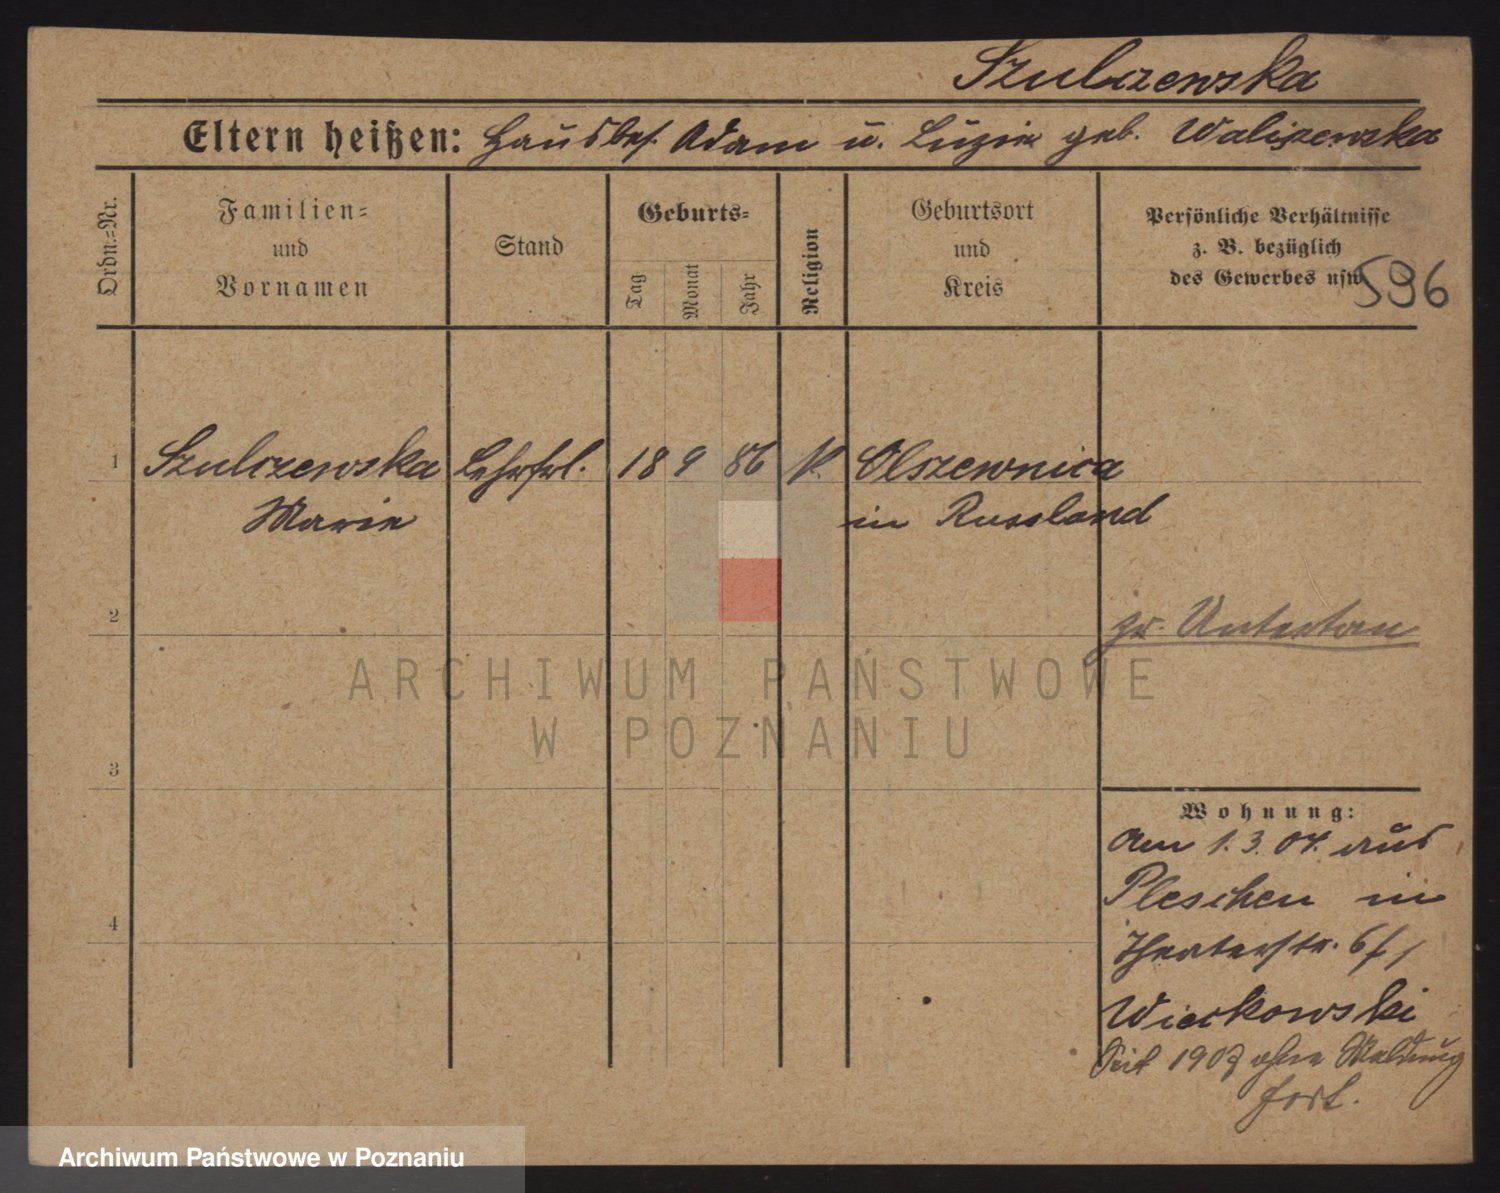 Szulczewska
Eltern heißen: Hausbes. Adam u. Luzie geb. Waliszewska
Ordn.-Nr.
Familien-
und
Vornamen
Stand
Geburts-
Tag
Monat
Jahr
Religion
Geburtsort
und
Kreis
Persönliche Verhältnisse
z. B. bezüglich
des Gewerbes usw.
596
1 Szulczewska Lehrfrl. 18 9 86 K. Olszewnica
Marie in Russland
2
pr. Untertan
ARCHIWUM PAŃSTWOWE
W POZNANIU
3
Wohnung:
Am 1.3.04. aus
Pleschen in
4
Theaterstr. 6 f,
Wieckowski
Seit 1907 ohne Meldung
fort.
Archiwum Państwowe w Poznaniu